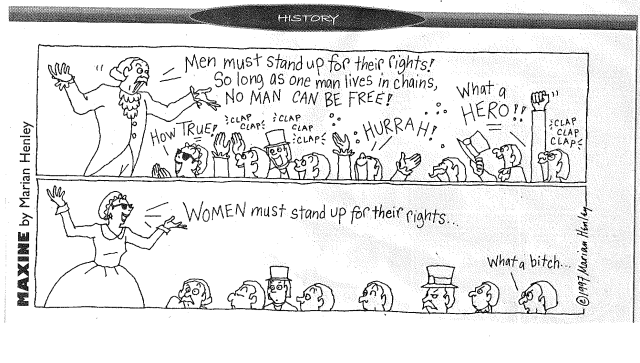 HISTORY
MAXINE by Marian Henley
Men must stand up for their rights!
So long as one man lives in chains,
NO MAN CAN BE FREE!
HOW TRUE!
CLAP
CLAP
CLAP
CLAP
CLAP
HURRAH!
What a
HERO!!
CLAP
CLAP
CLAP
WOMEN must stand up for their rights...
What a bitch...
©1997 Marian Henley